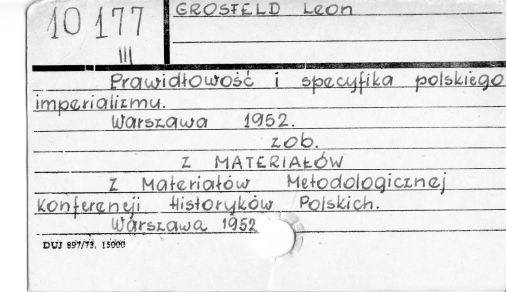 10 177
III
GROSFELD Leon
Prawidłowość i specyfika polskiego
imperializmu.
Warszawa 1952.
zob.
Z MATERIAŁÓW
Z Materiałów Metodologicznej
Konferencji Historyków Polskich.
Warszawa 1952
DUJ 897/73. 15000